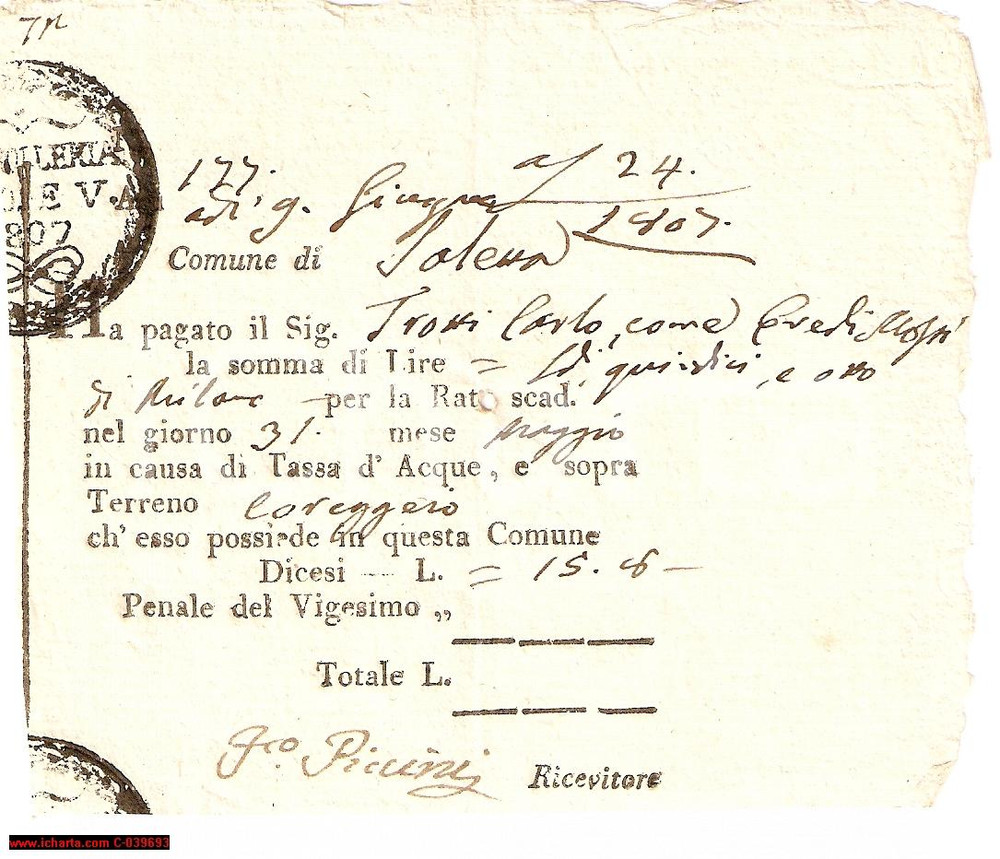 ILLERIA
E V. A
1807
177. a/ 24.
adi 9. Giugno 1807.
Comune di Solesa
Ha pagato il Sig. Trotti Carlo, come Eredi
la somma di Lire = di quindici, e otto
di Milano — per la Rat scad.
nel giorno 31. mese Maggio
in causa di Tassa d' Acque, e sopra
Terreno Coreggero
ch' esso possiede in questa Comune
Dicesi — L. = 15. 8 —
Penale del Vigesimo „
Totale L.
Fco. Piccini Ricevitore
www.icharta.com C-039693